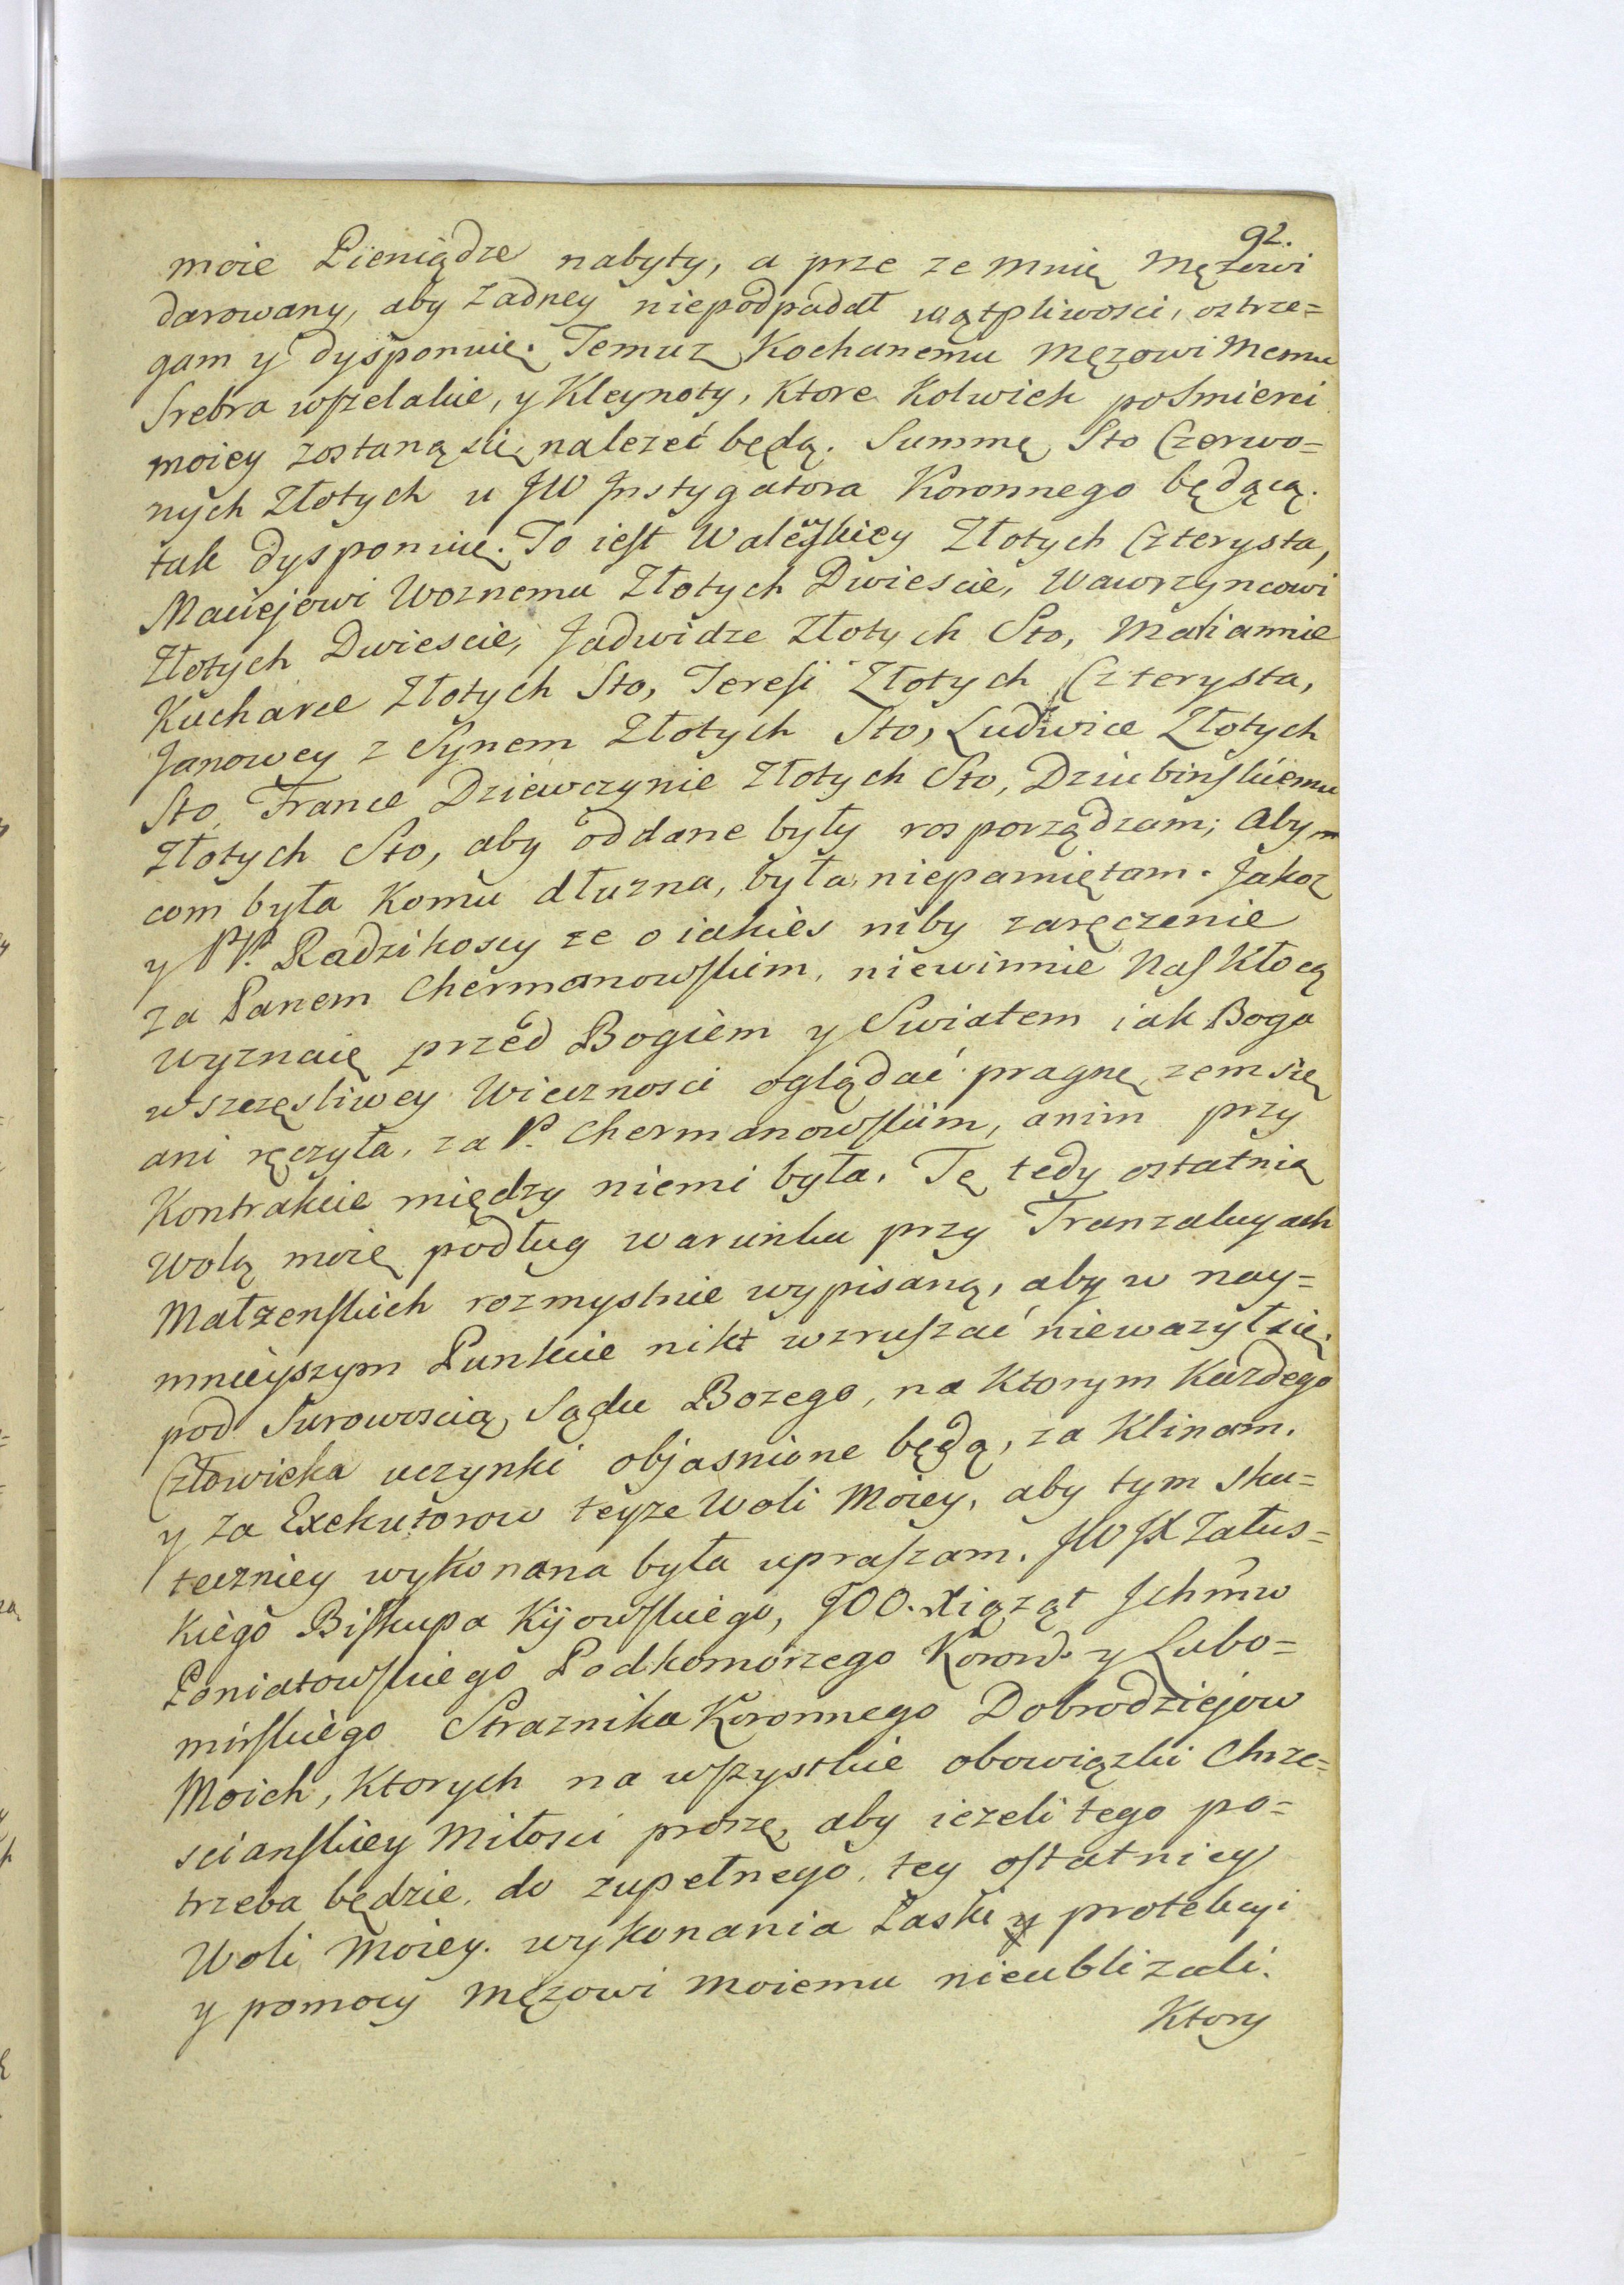 92.
moie Pieniądze nabyty, a prze ze mnię Męzowi
darowany, aby zadney niepodpadał wątpliwosci, ostrze=
gam y dysponuię. Temuz Kochanemu Męzowi Memu
Srebra wszelakie, y Kleynoty, Ktore Kolwiek poSmierci
moiey zostaną się, nalezeć będą. Summę Sto Czerwo=
nych Złotych u JW Jnstygatora Koronnego będącą.
tak dysponuię. To iest Walewskiey Złotych Czterysta,
Maciejowi Woznemu Złotych Dwiescie, Wawrzyncowi
Złotych Dwiescie, Jadwidze Złotych Sto, Maliannie
Kucharce Złotych Sto, Teresi Złotych Czterysta,
Janowey z Synem Złotych Sto, Ludwice Złotych
Sto, France Dziewczynie Złotych Sto, Dziubinskiemu
Złotych Sto, aby oddane były rosporządzam; Abym
com była Komu dłuzna, była, niepamiętam. Jakoz
y PP. Radzikoscy ze o iakies niby zaręczenie
za Panem Chermanowskim, niewinnie Nas Kłocą
wyznaię przed Bogiem y Swiatem iak Boga
wszczęsliwey Wiecznosci oglądać pragnę, zem się
ani ręczyła, za P. Chermanowskim, anim przy
Kontrakcie między niemi była. Tę tedy ostatnią
Wolą moię podług warunku przy Tranzakcyach
Małzenskich rozmyslnie wypisaną, aby w nay=
mnieyszym Punkcie nikt wzruszać niewazył się.
pod Surowoscią Sądu Bozego, na Ktorym Kazdego
Człowieka uczynki objasnione będą, za Klinam.
y za Exekutorow teyze Woli Moiey, aby tym sku=
teczniey wykonana była upraszam. JW JX Załus=
kiego Biskupa Kijowskiego, JOO. Xiąząt Jchmw
Poniatowskiego Podkomorzego Koron. y Lubo=
mirskiego Straznika Koronnego Dobrodziejow
Moich, Ktorych na wszystkie obowiązki Chrze=
scianskiey Miłosci proszę, aby iezeli tego po=
trzeba będzie, do zupełnego, tey ostatniey
Woli Moiey. wykonania Łaski y protekcyi
y pomocy Męzowi Moiemu nieublizali.
Ktory